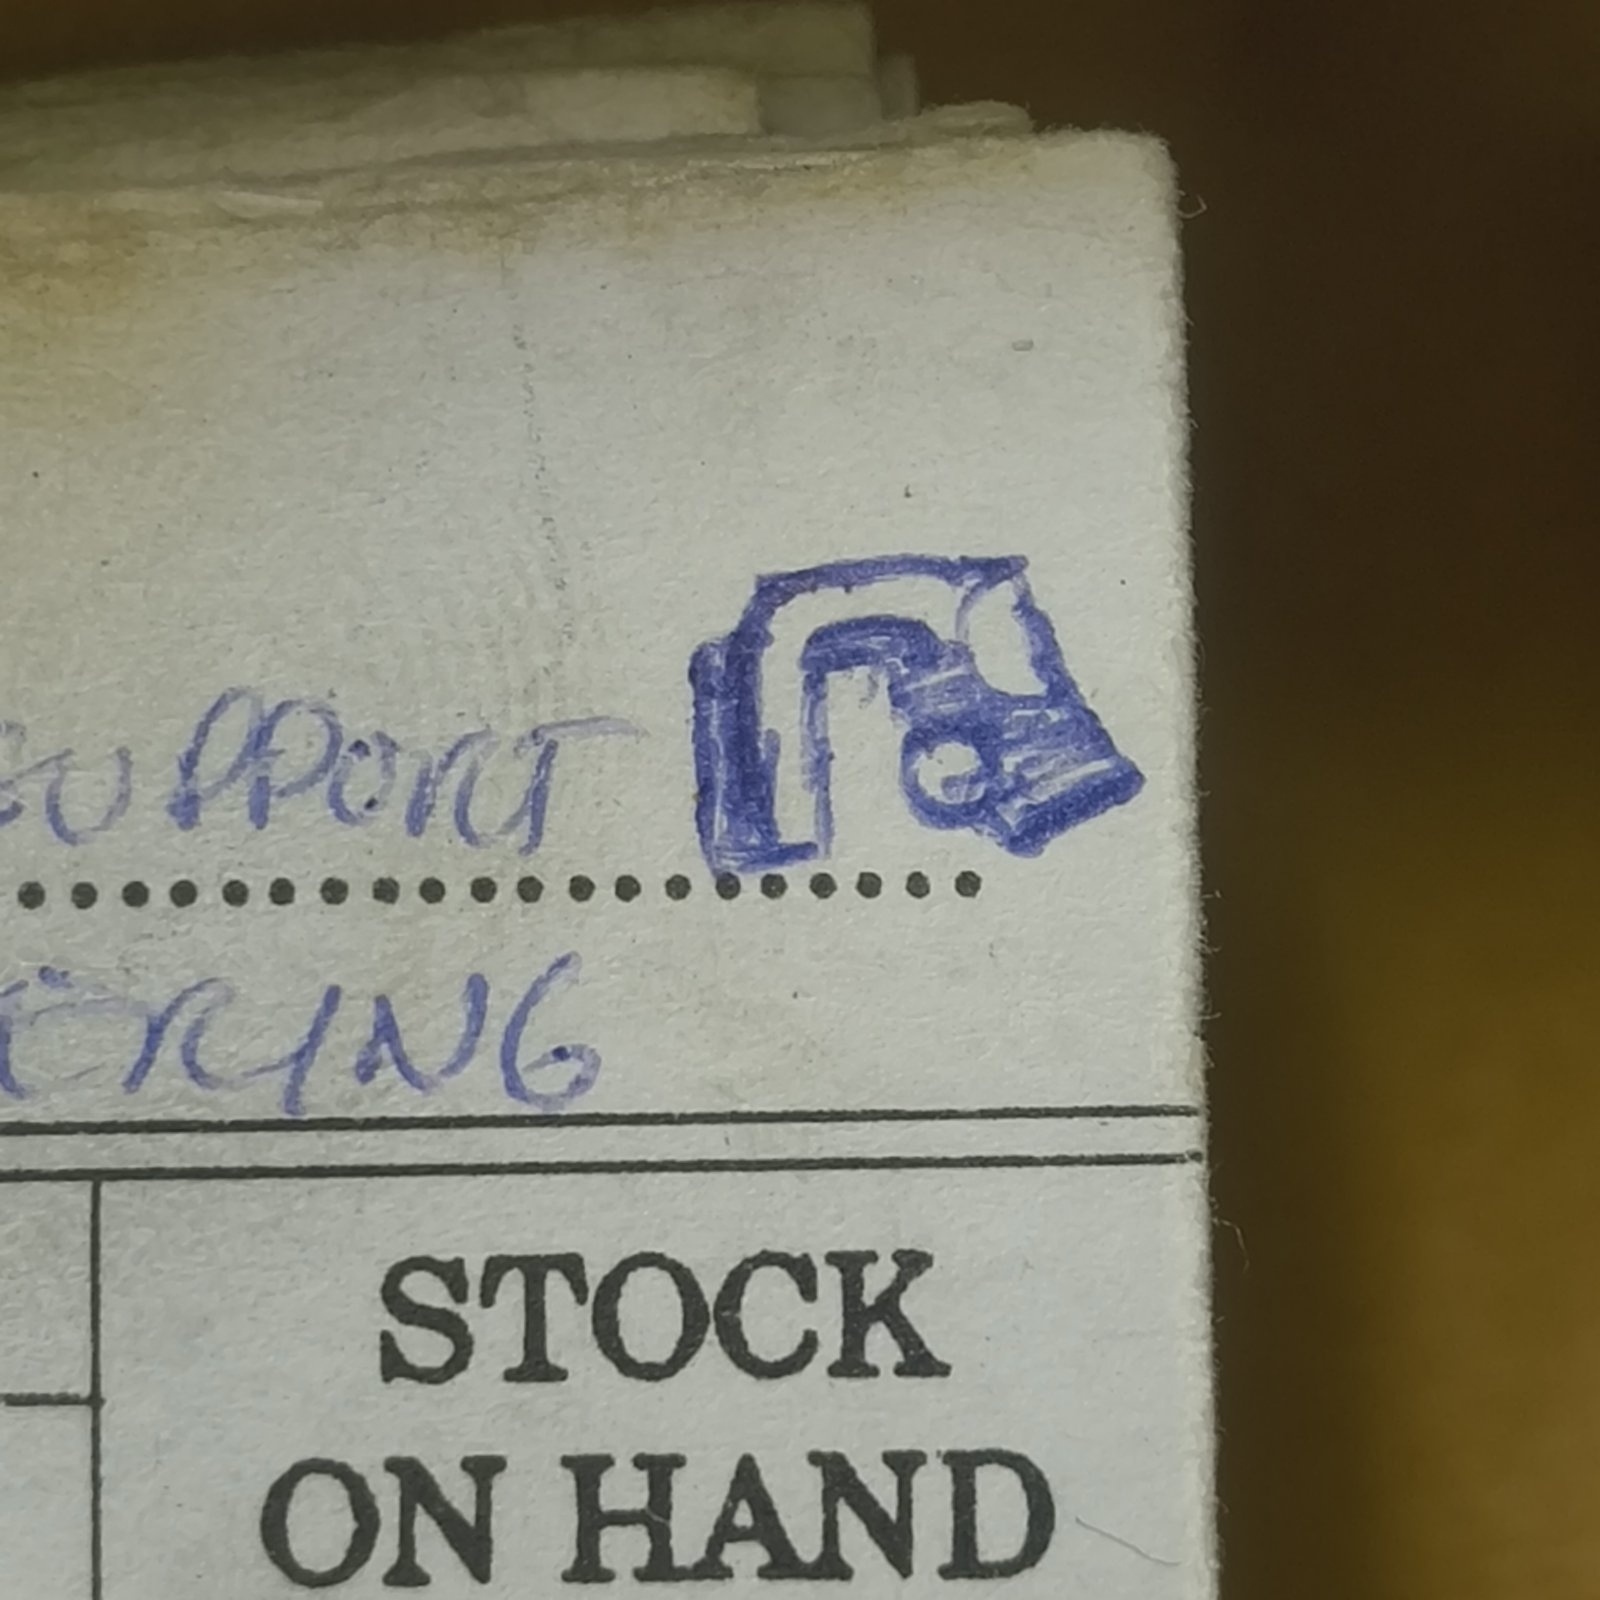 SUPPORT
ERING
STOCK
ON HAND